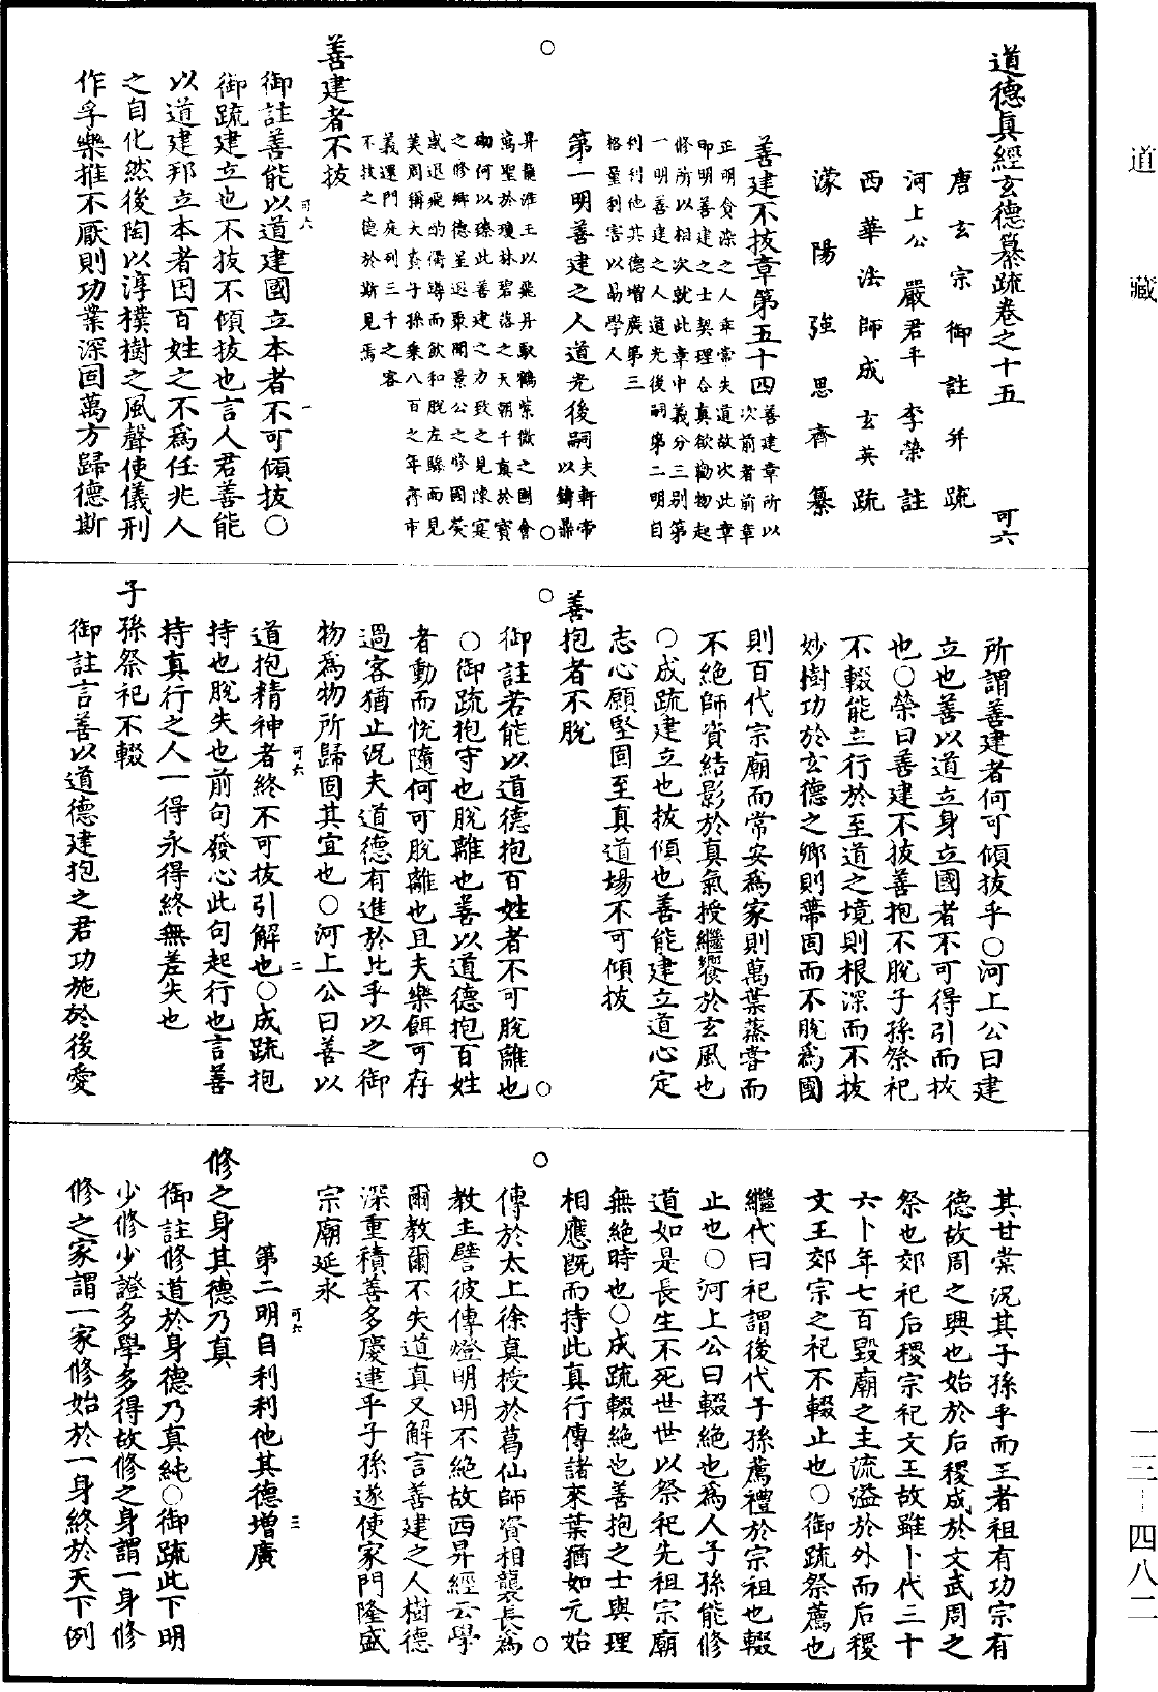 道德眞經玄德纂疏卷之十五　可六
唐玄宗御註并疏
河上公　嚴君平　李榮註
西華法師成玄英疏
濛陽強思齊纂
善建不拔章第五十四善建章所以次前者前章
正明貪染之人乖常失道故次此章
即明善建之士契理合真欲勸物起
修所以相次就此章中義分三别第
一明善建之人道光後嗣第二明自
利利他其德增廣第三
格量利害以勗學人
第一明善建之人道光後嗣夫軒帝以鑄鼎
昇龍淮王以飛丹馭鶴紫微之國會
萬聖於瓊林碧落之天朝千真於寳
砌何以臻此善建之力致之見陳寔
之修鄉德星迺聚聞景公之修國熒
惑退飛昫儒蹲而飲和脫左驂而見
美周稱大賚子孫乗八百之年齊市
義還門庭列三千之客
不拔之德於斯見焉
善建者不拔
御註善能以道建國立本者不可傾拔○
御疏建立也不拔不傾拔也言人君善能
以道建邦立本者因百姓之不爲任兆人
之自化然後陶以淳樸樹之風聲使儀刑
作孚樂推不厭則功業深固萬方歸德斯
所謂善建者何可傾拔乎○河上公曰建
立也善以道立身立國者不可得引而拔
也○榮曰善建不拔善抱不脫子孫祭祀
不輟能立行於至道之境則根深而不拔
妙樹功於玄德之鄉則蔕固而不脫爲國
則百代宗廟而常安爲家則萬葉蒸嘗而
不絕師資結影於真氣授繼饗於玄風也
○成疏建立也拔傾也善能建立道心定
志心願堅固至真道場不可傾拔
善抱者不脫
御註若能以道德抱百姓者不可脫離也
○御疏抱守也脫離也善以道德抱百姓
者動而悅隨何可脫離也且夫樂餌可存
過客猶止況夫道德有進於此乎以之御
物爲物所歸固其宜也○河上公曰善以
道抱精神者終不可拔引解也○成疏抱
持也脫失也前句發心此句起行也言善
持真行之人一得永得終無差失也
子孫祭祀不輟
御註言善以道德建抱之君功施於後愛
其甘棠況其子孫乎而王者祖有功宗有
德故周之興也始於后稷成於文武周之
祭也郊祀后稷宗祀文王故雖卜代三十
六卜年七百毀廟之主流溢於外而后稷
文王郊宗之祀不輟止也○御疏祭薦也
繼代曰祀謂後代子孫薦禮於宗祖也輟
止也○河上公曰輟絕也爲人子孫能修
道如是長生不死世世以祭祀先祖宗廟
無絕時也○成疏輟絕也善抱之士與理
相應既而持此真行傳諸來葉猶如元始
傳於太上徐真授於葛仙師資相襲長爲
教主譬彼傳燈明明不絕故西昇經云學
爾教爾不失道真又解言善建之人樹德
深重積善多慶逮乎子孫遂使家門隆盛
宗廟延永
第二明自利利他其德增廣
修之身其德乃真
御註修道於身德乃真純○御疏此下明
少修少證多學多得故修之身謂一身修
修之家謂一家修始於一身終於天下例
可六　一
可六　二
可六　三
道藏
一三－四八二